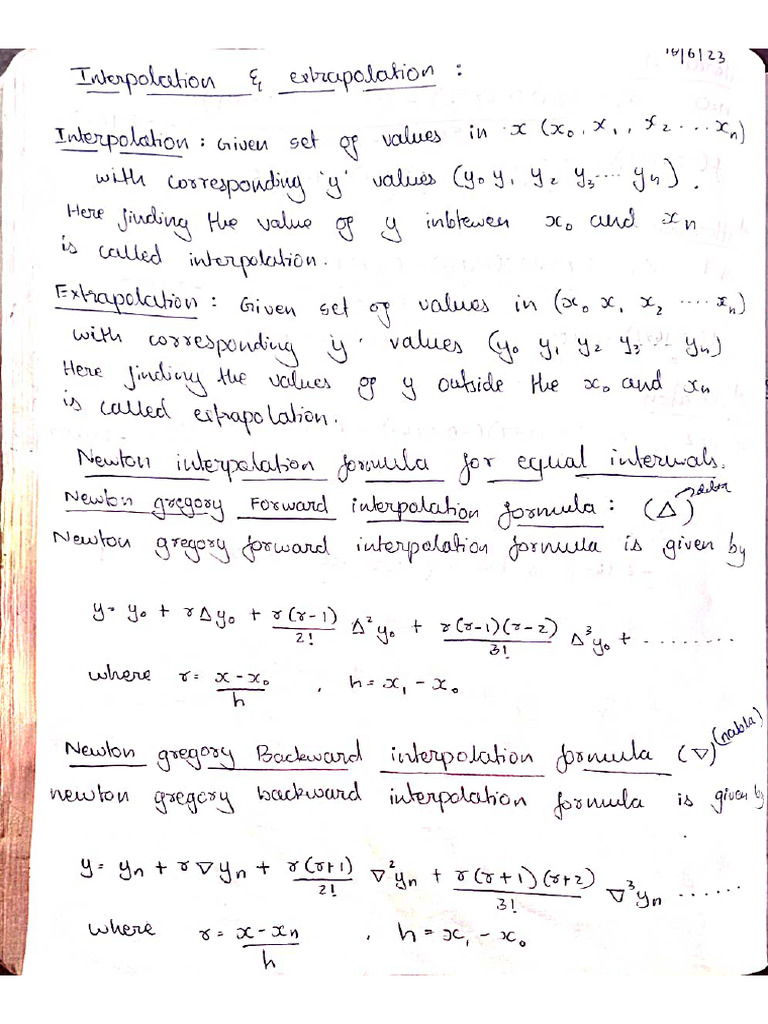 16/6/23
Interpolation & extrapolation :
Interpolation : Given set of values in x (x₀, x₁, , x₂ ... xₙ)
with corresponding 'y' values (y₀ y₁ y₂ y₃... yₙ) .
Here finding the value of y inbtewen x₀ and xₙ
is called interpolation.
Extrapolation : Given set of values in (x₀ x₁ x₂ .... xₙ)
with corresponding 'y' values (y₀ y₁ y₂ y₃ .. yₙ)
Here finding the values of y outside the x₀ and xₙ
is called extrapolation.
Newton interpolation formula for equal intervals.
Newton gregory Forward interpolation formula : (Δ)
Newton gregory forward interpolation formula is given by
y = y₀ + rΔy₀ + r(r-1)/2! Δ²y₀ + r(r-1)(r-2)/3! Δ³y₀ + ........
where r = x - x₀/h , h = x₁ - x₀
Newton gregory Backward interpolation formula (∇) (nabla)
newton gregory backward interpolation formula is given by
y = yₙ + r∇yₙ + r(r+1)/2! ∇²yₙ + r(r+1)(r+2)/3! ∇³yₙ ......
where r = x - xₙ/h , h = x₁ - x₀